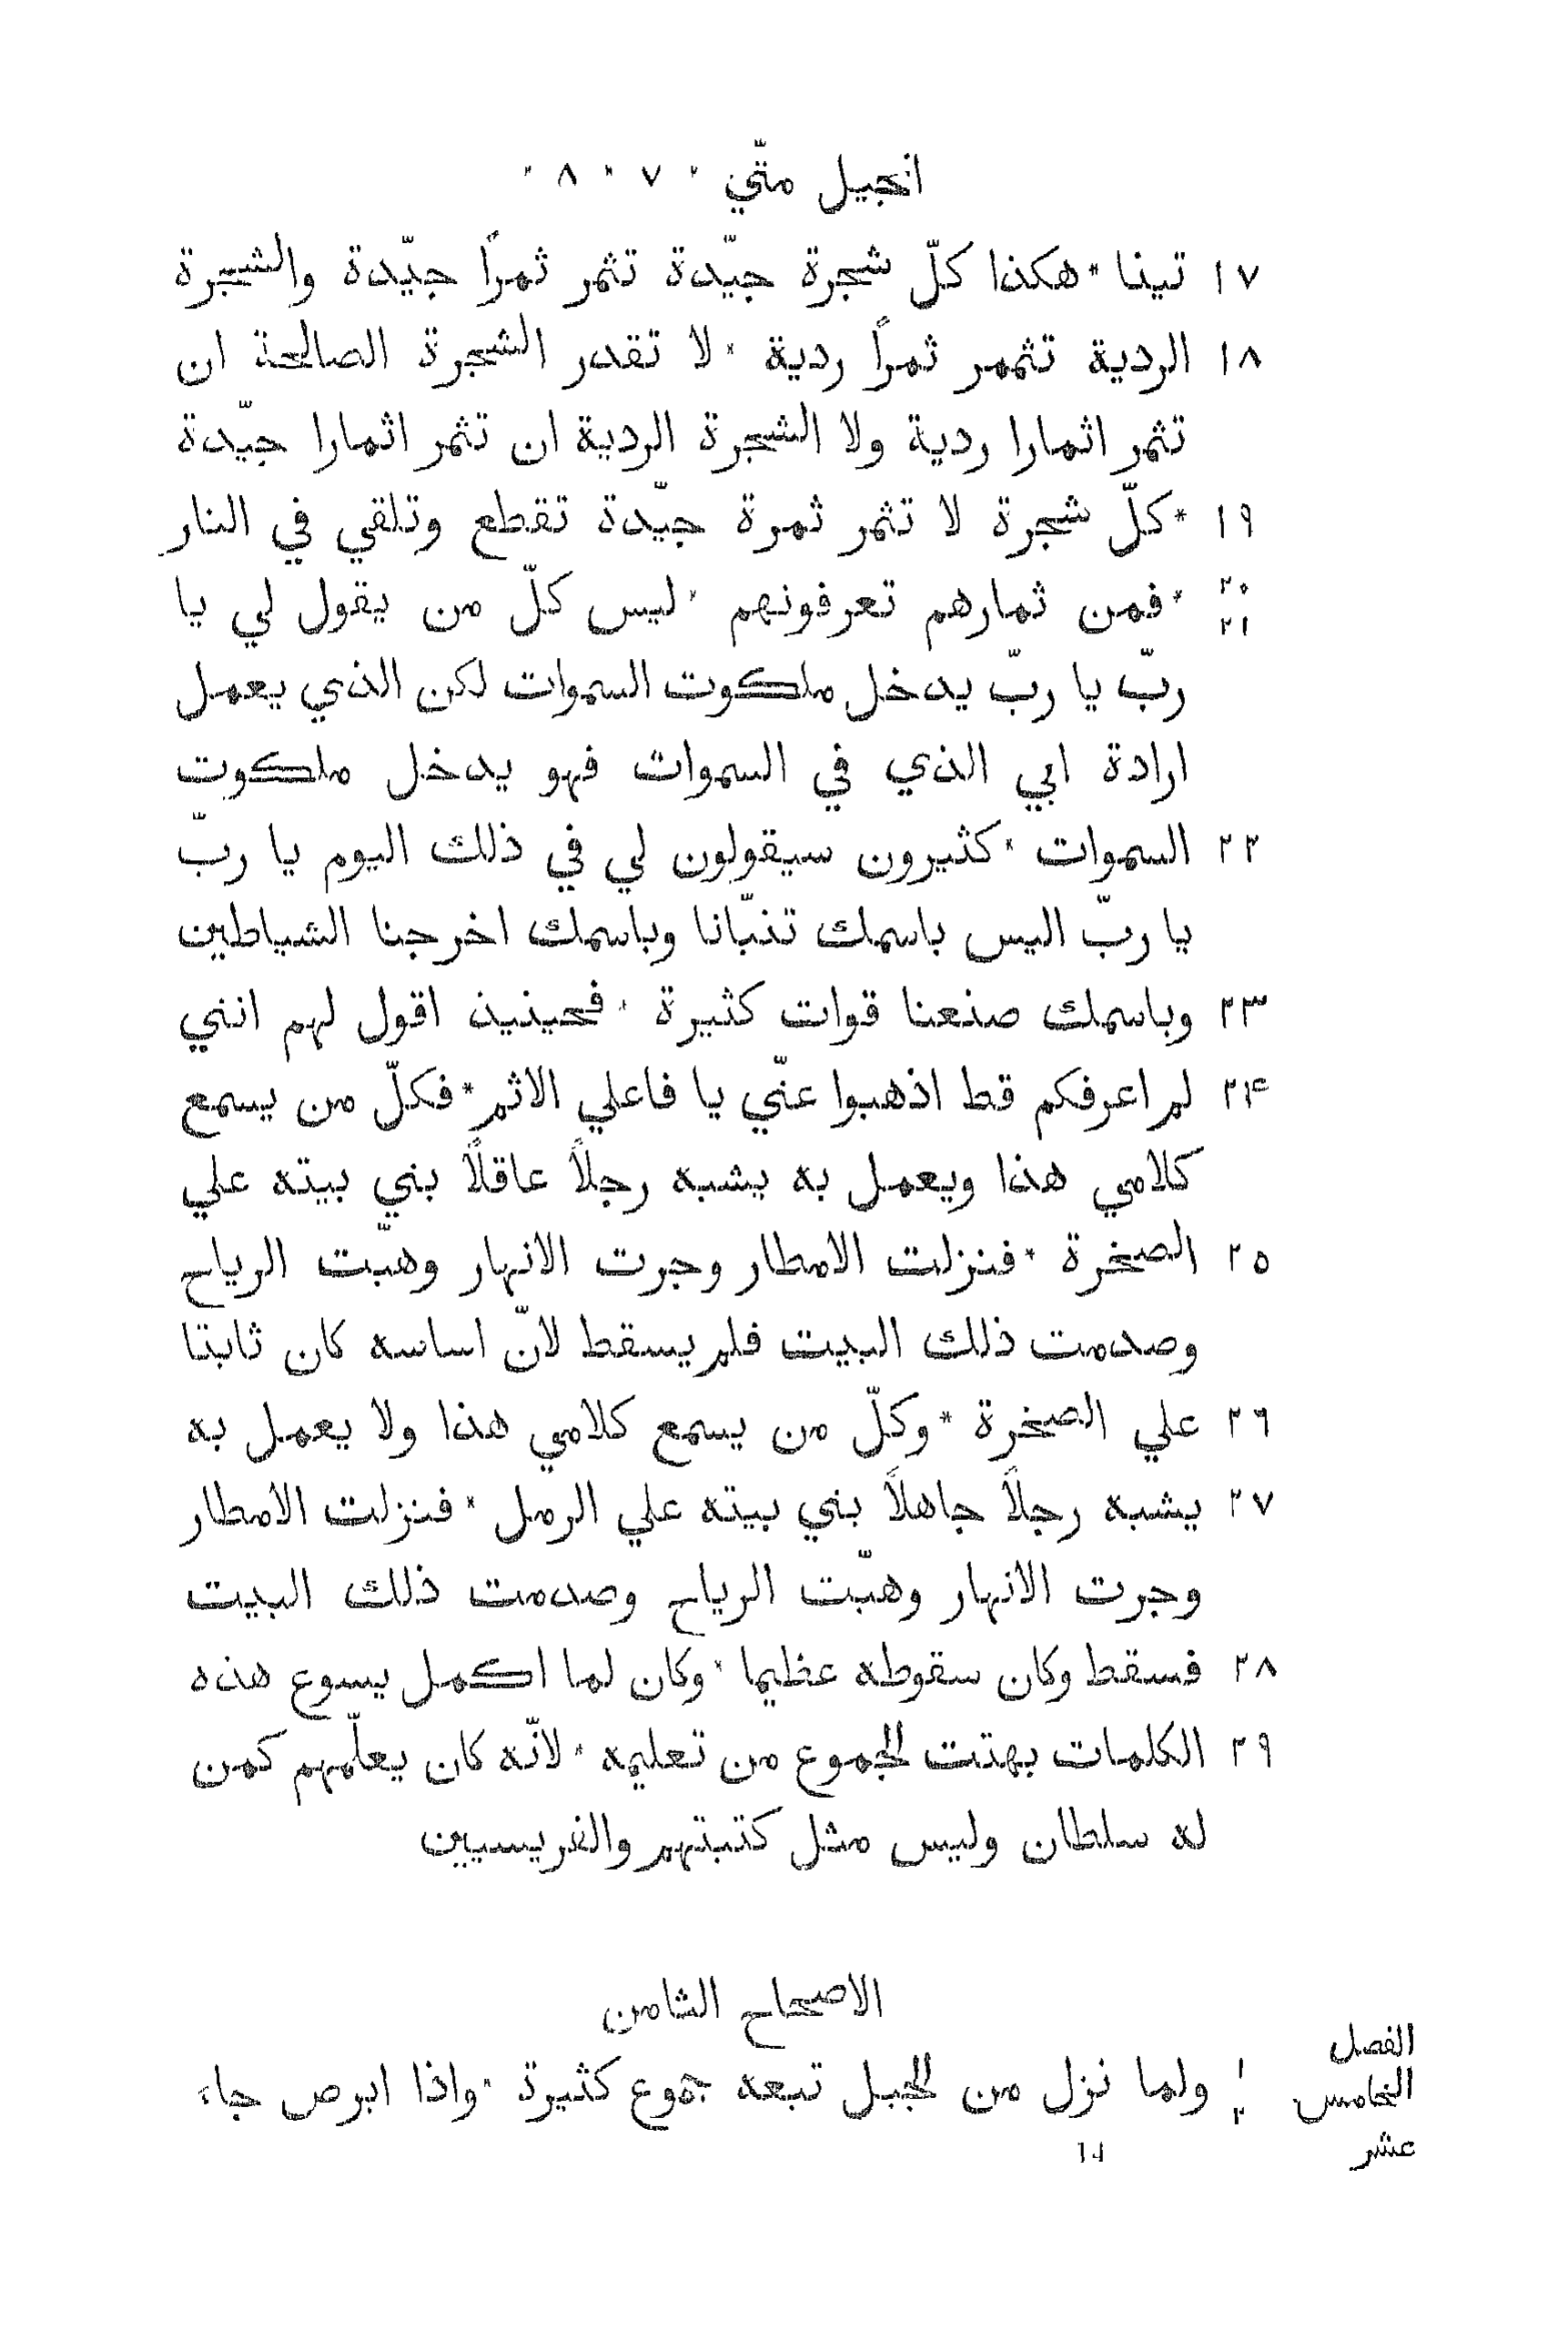 انجيل متّي * ٧ * ٨ *
١٧ تينا * هكذا كلّ شجرة جيّدة تثمر ثمرًا جيّدة والشجرة
١٨ الردية تثممر ثمرًا ردية * لا تقدر الشجرة الصالحة ان
تثمر اثمارا ردية ولا الشجرة الردية ان تثمر اثمارا جيّدة
١٩ * كلّ شجرة لا تثمر ثمرة جيّدة تقطع وتلقي في النار
٢٠ ٢١ * فمن ثمارهم تعرفونهم * ليس كلّ من يقول لي يا
ربّ يا ربّ يدخل ملكوت السموات لكن الذي يعمل
ارادة ابي الذي في السموات فهو يدخل ملكوت
٢٢ السموات * كثيرون سيقولون لي في ذلك اليوم يا ربّ
يا ربّ اليس باسمك تنبّانا وباسمك اخرجنا الشياطين
٢٣ وباسمك صنعنا قوات كثيرة * فحينيذ اقول لهم انني
٢۴ لم اعرفكم قط اذهبوا عنّي يا فاعلي الاثم * فكلّ من يسمع
كلامي هذا ويعمل به يشبه رجلاً عاقلاً بني بيته علي
٢٥ الصخرة * فنزلت الامطار وجرت الانهار وهبّت الرياح
وصدمت ذلك البيت فلم يسقط لانّ اساسه كان ثابتا
٢٦ علي الصخرة * وكلّ من يسمع كلامي هذا ولا يعمل به
٢٧ يشبه رجلاً جاهلاً بني بيته علي الرمل * فنزلت الامطار
وجرت الانهار وهبّت الرياح وصدمت ذلك البيت
٢٨ فسقط وكان سقوطه عظيما * وكان لما اكمل يسوع هذه
٢٩ الكلمات بهتت الجموع من تعليمه * لانّه كان يعلّمهم كمن
له سلطان وليس مثل كتبتهم والفريسيين
الاصحاح الثامن
الفصل الخامس عشر
١ ٢ ولما نزل من الجبل تبعه جموع كثيرة * واذا ابرص جاء
14